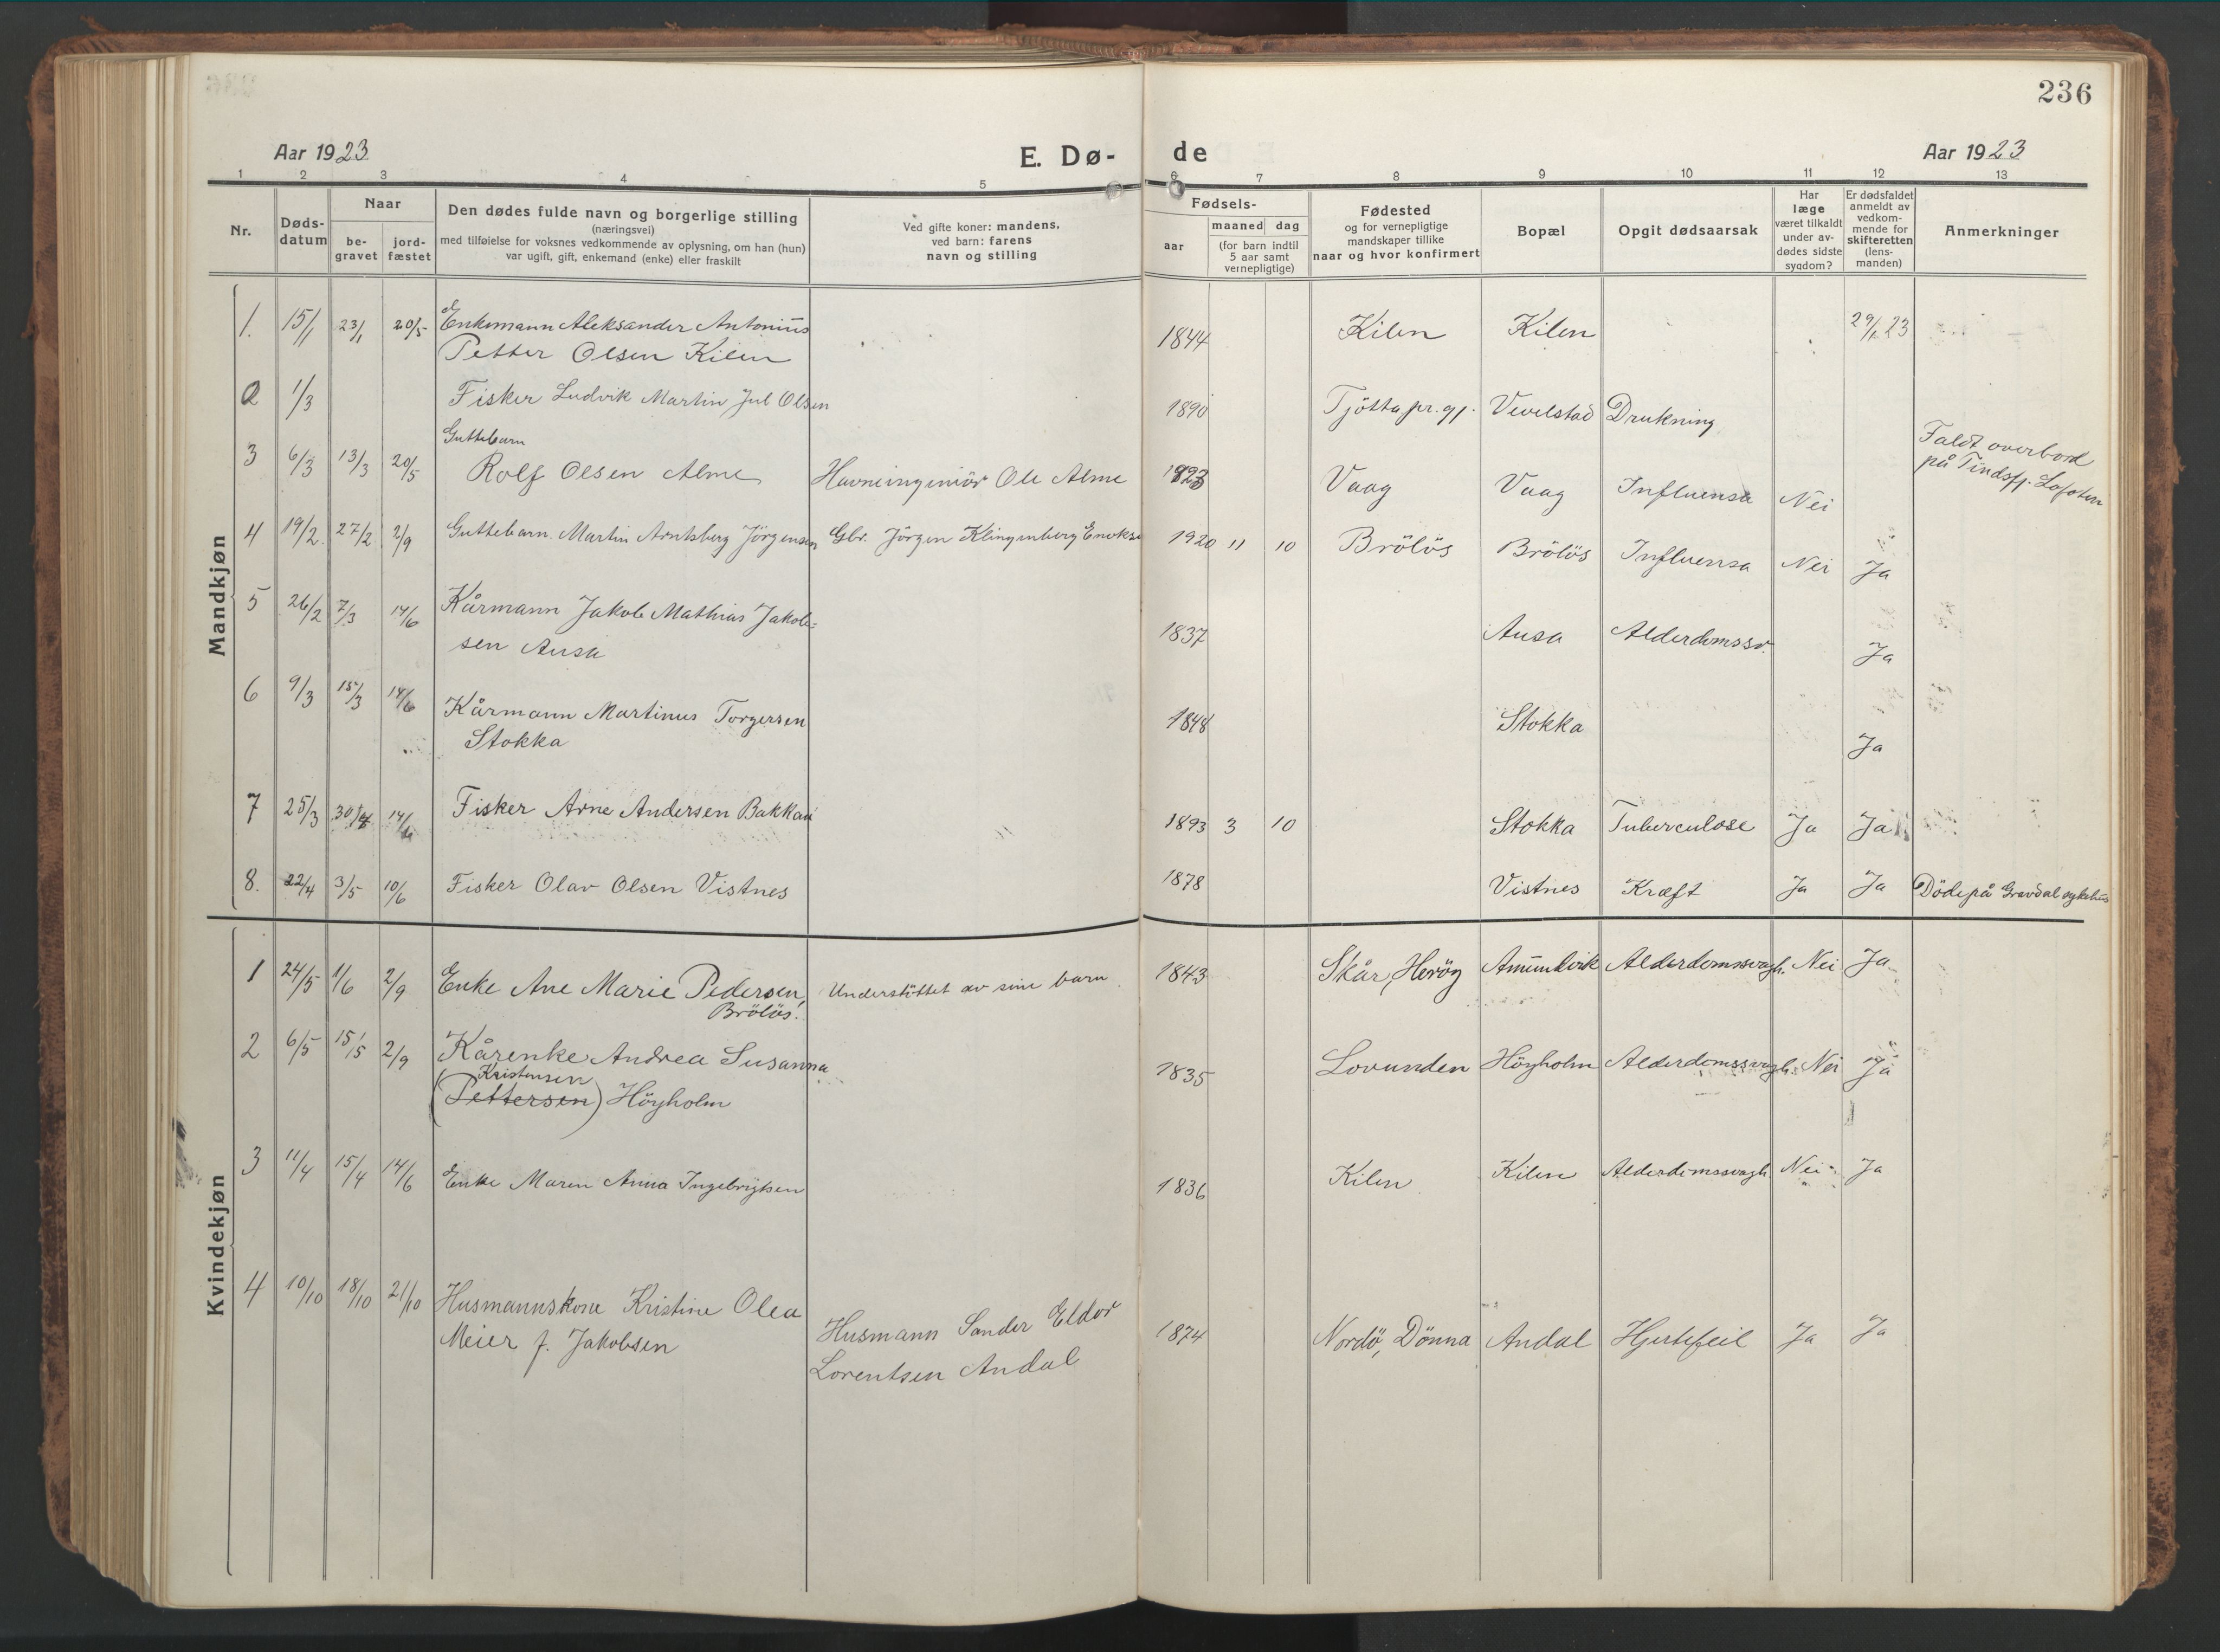 236
Aar 1923
E. Dø-
de
Aar 1923
1 2 3 4 5 6 7 8 9 10 11 12 13
Nr.
Døds-
datum
Naar
be-
gravet
jord-
fæstet
Den dødes fulde navn og borgerlige stilling
(næringsvei)
med tilføielse for voksnes vedkommende av oplysning, om han (hun)
var ugift, gift, enkemand (enke) eller fraskilt
Ved gifte koner: mandens,
ved barn: farens
navn og stilling
Fødsels-
aar
maaned dag
(for barn indtil
5 aar samt
vernepligtige)
Fødested
og for vernepligtige
mandskaper tillike
naar og hvor konfirmert
Bopæl
Opgit dødsaarsak
Har
læge
været tilkaldt
under av-
dødes sidste
sygdom?
Er dødsfaldet
anmeldt av
vedkom-
mende for
skifteretten
(lens-
manden)
Anmerkninger
Mandkjøn
1. 15/1 23/1 20/5 Enkemann Aleksander Antonius
Petter Olsen Kilen
1844 Kilen Kilen 29/1 23
2 1/3 Fisker Ludvik Martin Jul Olsen 1890 Tjötta pr.gj. Vevelstad Drukning
Faldt overbord
på Tindsfj. Lofoten
Guttebarn
3 6/3 13/3 20/5 Rolf Olsen Alme Havneingeniör Ole Alme 1923 Vaag Vaag Influensa Nei
4 19/2 27/2 2/9 Guttebarn Martin Arntsberg Jörgensen Gbr. Jörgen Klingenberg 1920 11 10 Brölös Brölös Influensa Nei Ja
5 26/2 7/3 14/6 Kårmann Jakob Mathias Jakob=
sen Ausa
1837 Ausa Alderdomssv. Ja
6 9/3 15/3 14/6 Kårmann Martinus Torgersen
Stokka
1848 Stokka Ja
7 25/3 30/4 14/6 Fisker Arne Andersen Bakkan 1893 3 10 Stokka Tuberculose Ja Ja
8. 22/4 3/5 10/6 Fisker Olav Olsen Vistnes 1878 Vistnes Kræft Ja Ja Döde på Gravdal sykehus
Kvindekjøn
1 24/5 1/6 2/9 Enke Ane Marie Pedersen,
Brölös.
Understöttet av sine barn. 1843 Skår, Heröy Alderdomssvagh. Nei Ja
2 6/5 15/5 2/9 Kårenke Andrea Susanna
Kristensen
(Pettersen) Höyholm
1835 Lovunden Höyholm Alderdomssvagh. Nei Ja
3 11/4 15/4 14/6 Enke Maren Anna Ingebrigtsen 1836 Kilen Kilen Alderdomssvagh. Nei Ja
4 10/10 18/10 21/10 Husmannskone Kristine Olea
Meier f. Jakobsen
Husmann Sander Eldor
Lorentsen Andal
1874 Nordö, Dönna Andal Hjertefeil Ja Ja